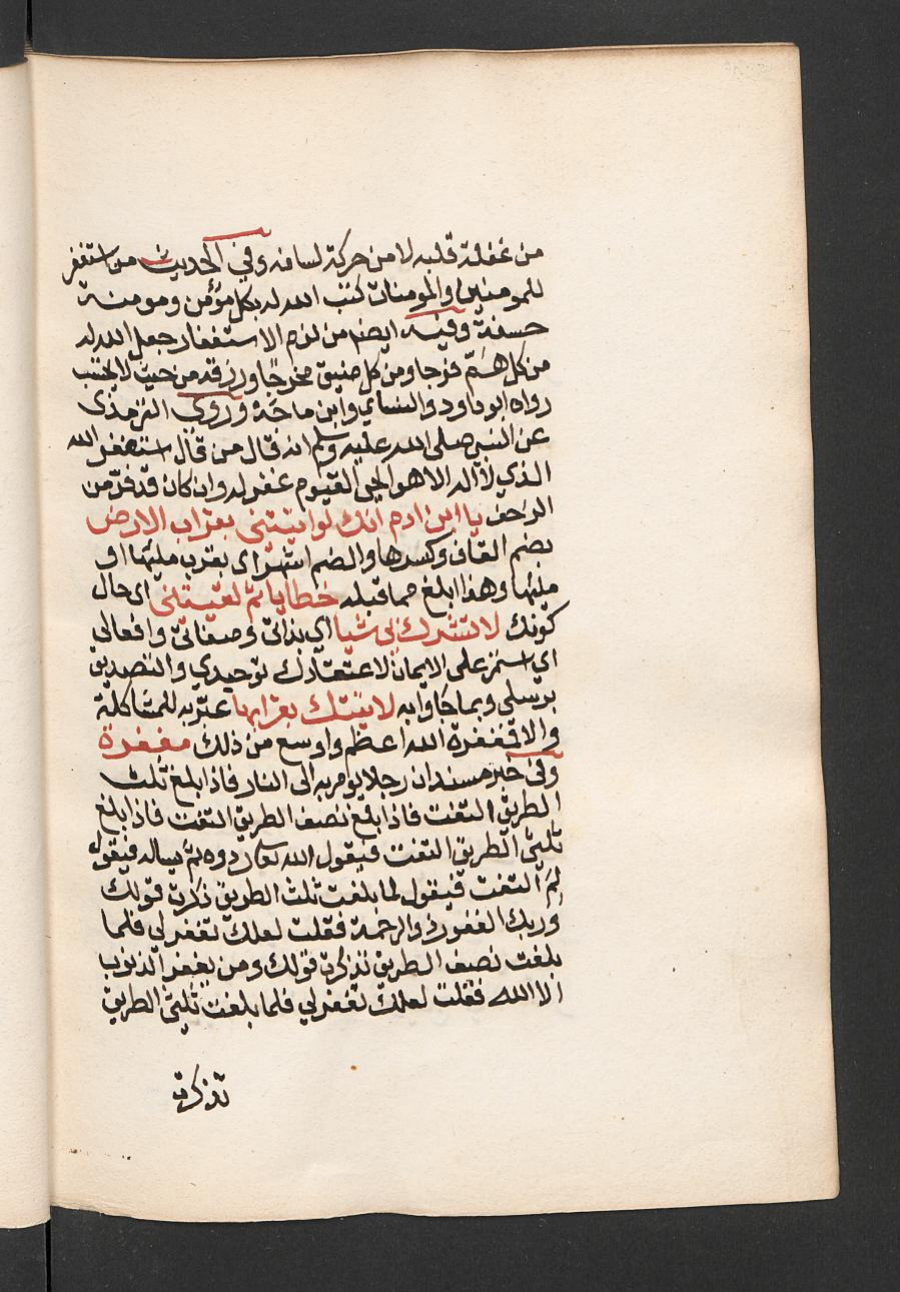 من غفلة قلبه لا من حركة لسانه وفي الحديث من استغفر
للمومنين والمومنات كتب الله له بكل مؤمن ومومنة
حسنة وفيه ايضا من لزم الاستغفار جعل الله له
من كل همّ فرجا ومن كل ضيق مخرجا ورزقه من حيث لا يحتسب
رواه ابو داود والنساي وابن ماجة وروى الترمذى
عن النبي صلى الله عليه وسلم انه قال من قال استغفر الله
الذي لا اله الا هو الحي القيوم غفر له وان كان قد فرّ من
الزحف يا ابن ادم انك لو اتيتنى بقراب الارض
بضم القاف وكسرها والضم اشهر اى بقرب مليها او
مليها وهذا ابلغ مما قبله خطايا ثمّ لقيتنى اى حال
كونك لا تشرك بي شيا اي بذاتى وصفاتى وافعالي
اى استمر على الايمان لاعتقادك توحيدي والتصديق
برسلى وبما جاوا به لاتيتك بقرابها عبّر به للمشاكلة
والا فمغفرة الله اعظم واوسع من ذلك مغفرة
وفى خبر مسند ان رجلا يومر به الى النار فاذا بلغ ثلث
الطريق التفت فاذا بلغ نصف الطريق التفت فاذا بلغ
ثلثى الطريق التفت فيقول الله تعا ردوه ثمّ يساله فيقول
لِمَ التفت فيقول لما بلغت ثلث الطريق ذكرت قولك
وربك الغفور ذو الرحمة فقلت لعلك تغفر لي فلما
بلغت نصف الطريق تذكرت قولك ومن يغفر الذنوب
الا الله فقلت لعلك تغفر لي فلما بلغت ثلثى الطريق
تذكرت